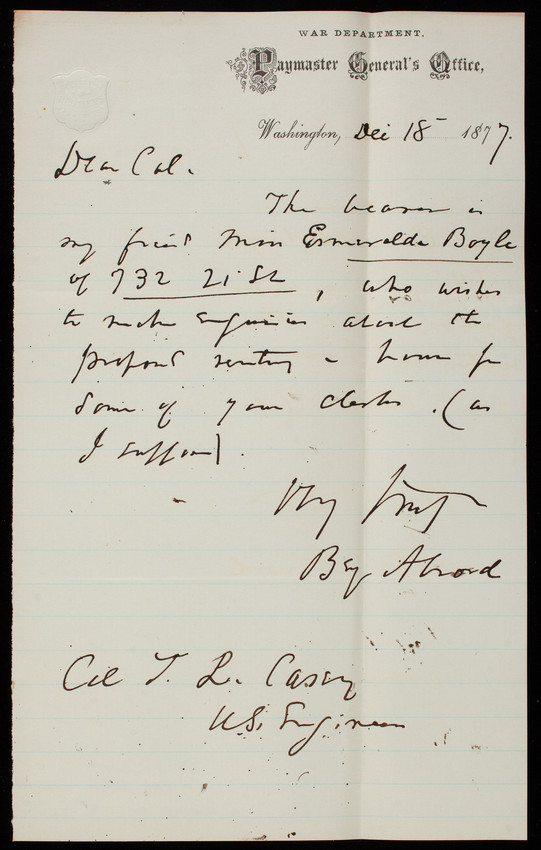 WAR DEPARTMENT,
Paymaster General's Office,
Washington, Dec 18 1877.
Dear Col.
The bearer is
my friend Miss Esmeralda Boyle
of 732 21 St, who wishes
to make enquiries about the
proposed renting a house for
some of your clerks. (as
I suppose).
Very truly
Benj Alvord
Col T. L. Casey
U.S. Engineers